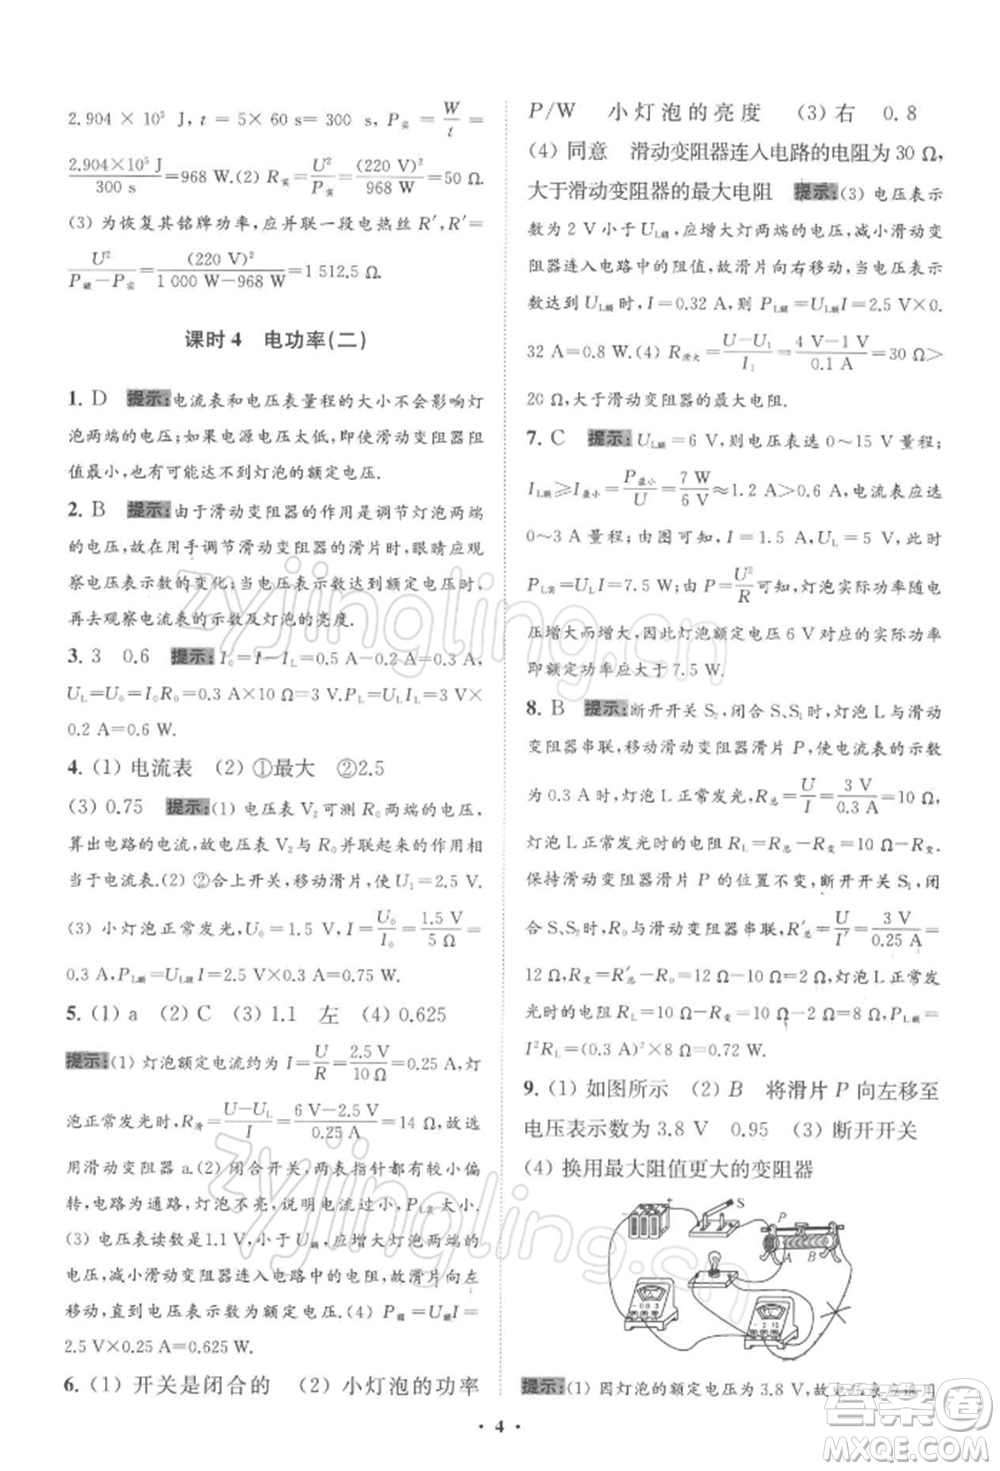 2.904 × 10⁵ J, t = 5 × 60 s = 300 s, P实 = W/t =
2.904×10⁵ J/300 s = 968 W. (2) R实 = U²/P实 = (220 V)²/968 W = 50 Ω.
(3) 为恢复其铭牌功率,应并联一段电热丝 R′,R′ =
U²/(P额－P实) = (220 V)²/(1 000 W－968 W) = 1 512.5 Ω.
课时4 电功率(二)
1. D 提示:电流表和电压表量程的大小不会影响灯
泡两端的电压;如果电源电压太低,即使滑动变阻器阻
值最小,也有可能达不到灯泡的额定电压.
2. B 提示:由于滑动变阻器的作用是调节灯泡两端
的电压,故在用手调节滑动变阻器的滑片时,眼睛应观
察电压表示数的变化;当电压表示数达到额定电压时,
再去观察电流表的示数及灯泡的亮度.
3. 3 0.6 提示:I₀=I－I_L=0.5 A－0.2 A=0.3 A,
U_L=U₀=I₀R₀=0.3 A×10 Ω=3 V,P_L=U_LI_L=3 V×
0.2 A=0.6 W.
4. (1) 电流表 (2) ①最大 ②2.5
(3) 0.75 提示:(1) 电压表 V₂ 可测 R₀ 两端的电压,可
算出电路的电流,故电压表 V₂ 与 R₀ 并联起来的作用相
当于电流表.(2) ②合上开关,移动滑片,使 U₁=2.5 V.
(3) 小灯泡正常发光,U₀=1.5 V,I=U₀/I₀=1.5 V/5 Ω=
0.3 A,P_L额=U_L额I=2.5 V×0.3 A=0.75 W.
5. (1) a (2) C (3) 1.1 左 (4) 0.625
提示:(1) 灯泡额定电流约为 I=U/R=2.5 V/10 Ω=0.25 A,灯
泡正常发光时,R滑=(U－U_L)/I=(6 V－2.5 V)/0.25 A=14 Ω,故选
用滑动变阻器 a.(2) 闭合开关,两表指针均发生偏
转,电路为通路,灯泡不亮,说明灯泡的 P_L实 太小.
(3) 电压表读数为 1.1 V,小于 U额,应增大灯两端的
电压,减小滑动变阻器连入电路中的电阻,滑片应向左
移动,直到电压表示数为额定电压.(4) P额=U额I=
2.5 V×0.25 A=0.625 W.
6. (1) 开关是闭合的 (2) 小灯泡的功率
P/W 小灯泡的亮度 (3) 右 0.8
(4) 同意 滑动变阻器连入电路的电阻为 30 Ω,
大于滑动变阻器的最大电阻 提示:(3) 电压表示
数为 2 V 小于 U_L额,应增大灯两端的电压,减小滑动变
阻器连入电路中的阻值,故滑片向右移动,当电压表示
数达到 U_L额 时,I=0.32 A,则 P_L额=U_L额I=2.5 V×0.
32 A=0.8 W.(4) R滑大=(U－U₁)/I₁=(4 V－1 V)/0.1 A=30 Ω>
20 Ω,大于滑动变阻器的最大电阻.
7. C 提示:U_L额=6 V,则电压表选 0～15 V 量程;
I_L额≥I最小=P最小/U=7 W/6 V≈1.2 A>0.6 A,电流表应选
0～3 A 量程,故电流表示数为 I=1.5 A,U_L=5 V,此时
P_L实=U_LI=7.5 W;由 P=U²/R可知,灯泡实际功率随电
压增大而增大,因此灯泡额定电压 6 V 对应的实际功率
即额定功率应大于 7.5 W.
8. B 提示:断开开关 S₂,闭合 S、S₁ 时,灯泡 L 与滑动
变阻器串联,移动变阻器滑片 P,使电流表的示数
为 0.3 A 时,灯泡 L 正常发光,R总=U/I=3 V/0.3 A=10 Ω,
灯泡正常发光时的电阻 R_L=R总－R变=10 Ω－R变.
保持滑动变阻器滑片 P 的位置不变,断开 S₁,闭
合 S、S₂时,R₀与滑动变阻器串联,R′总=U/I′=3 V/0.25 A=
12 Ω,因此 R变=R′总－R₀=12 Ω－10 Ω=2 Ω,灯泡 L 正常发
光时的电阻 R_L=10 Ω－R变=10 Ω－2 Ω=8 Ω,P_L额=
I²R_L=(0.3 A)²×8 Ω=0.72 W.
9. (1) 如图所示 (2) B 将滑片 P 向左移至
电压表示数为 3.8 V 0.95 (3) 断开开关
(4) 换用最大阻值更大的变阻器
+ S P A B
- 0.6 3
- 3 15
提示:(1) 因灯泡的额定电压为 3.8 V,故电压表应选用
• 4 •
zyjingling.cn
zyjingling.cn
答案圈
MXQE.COM